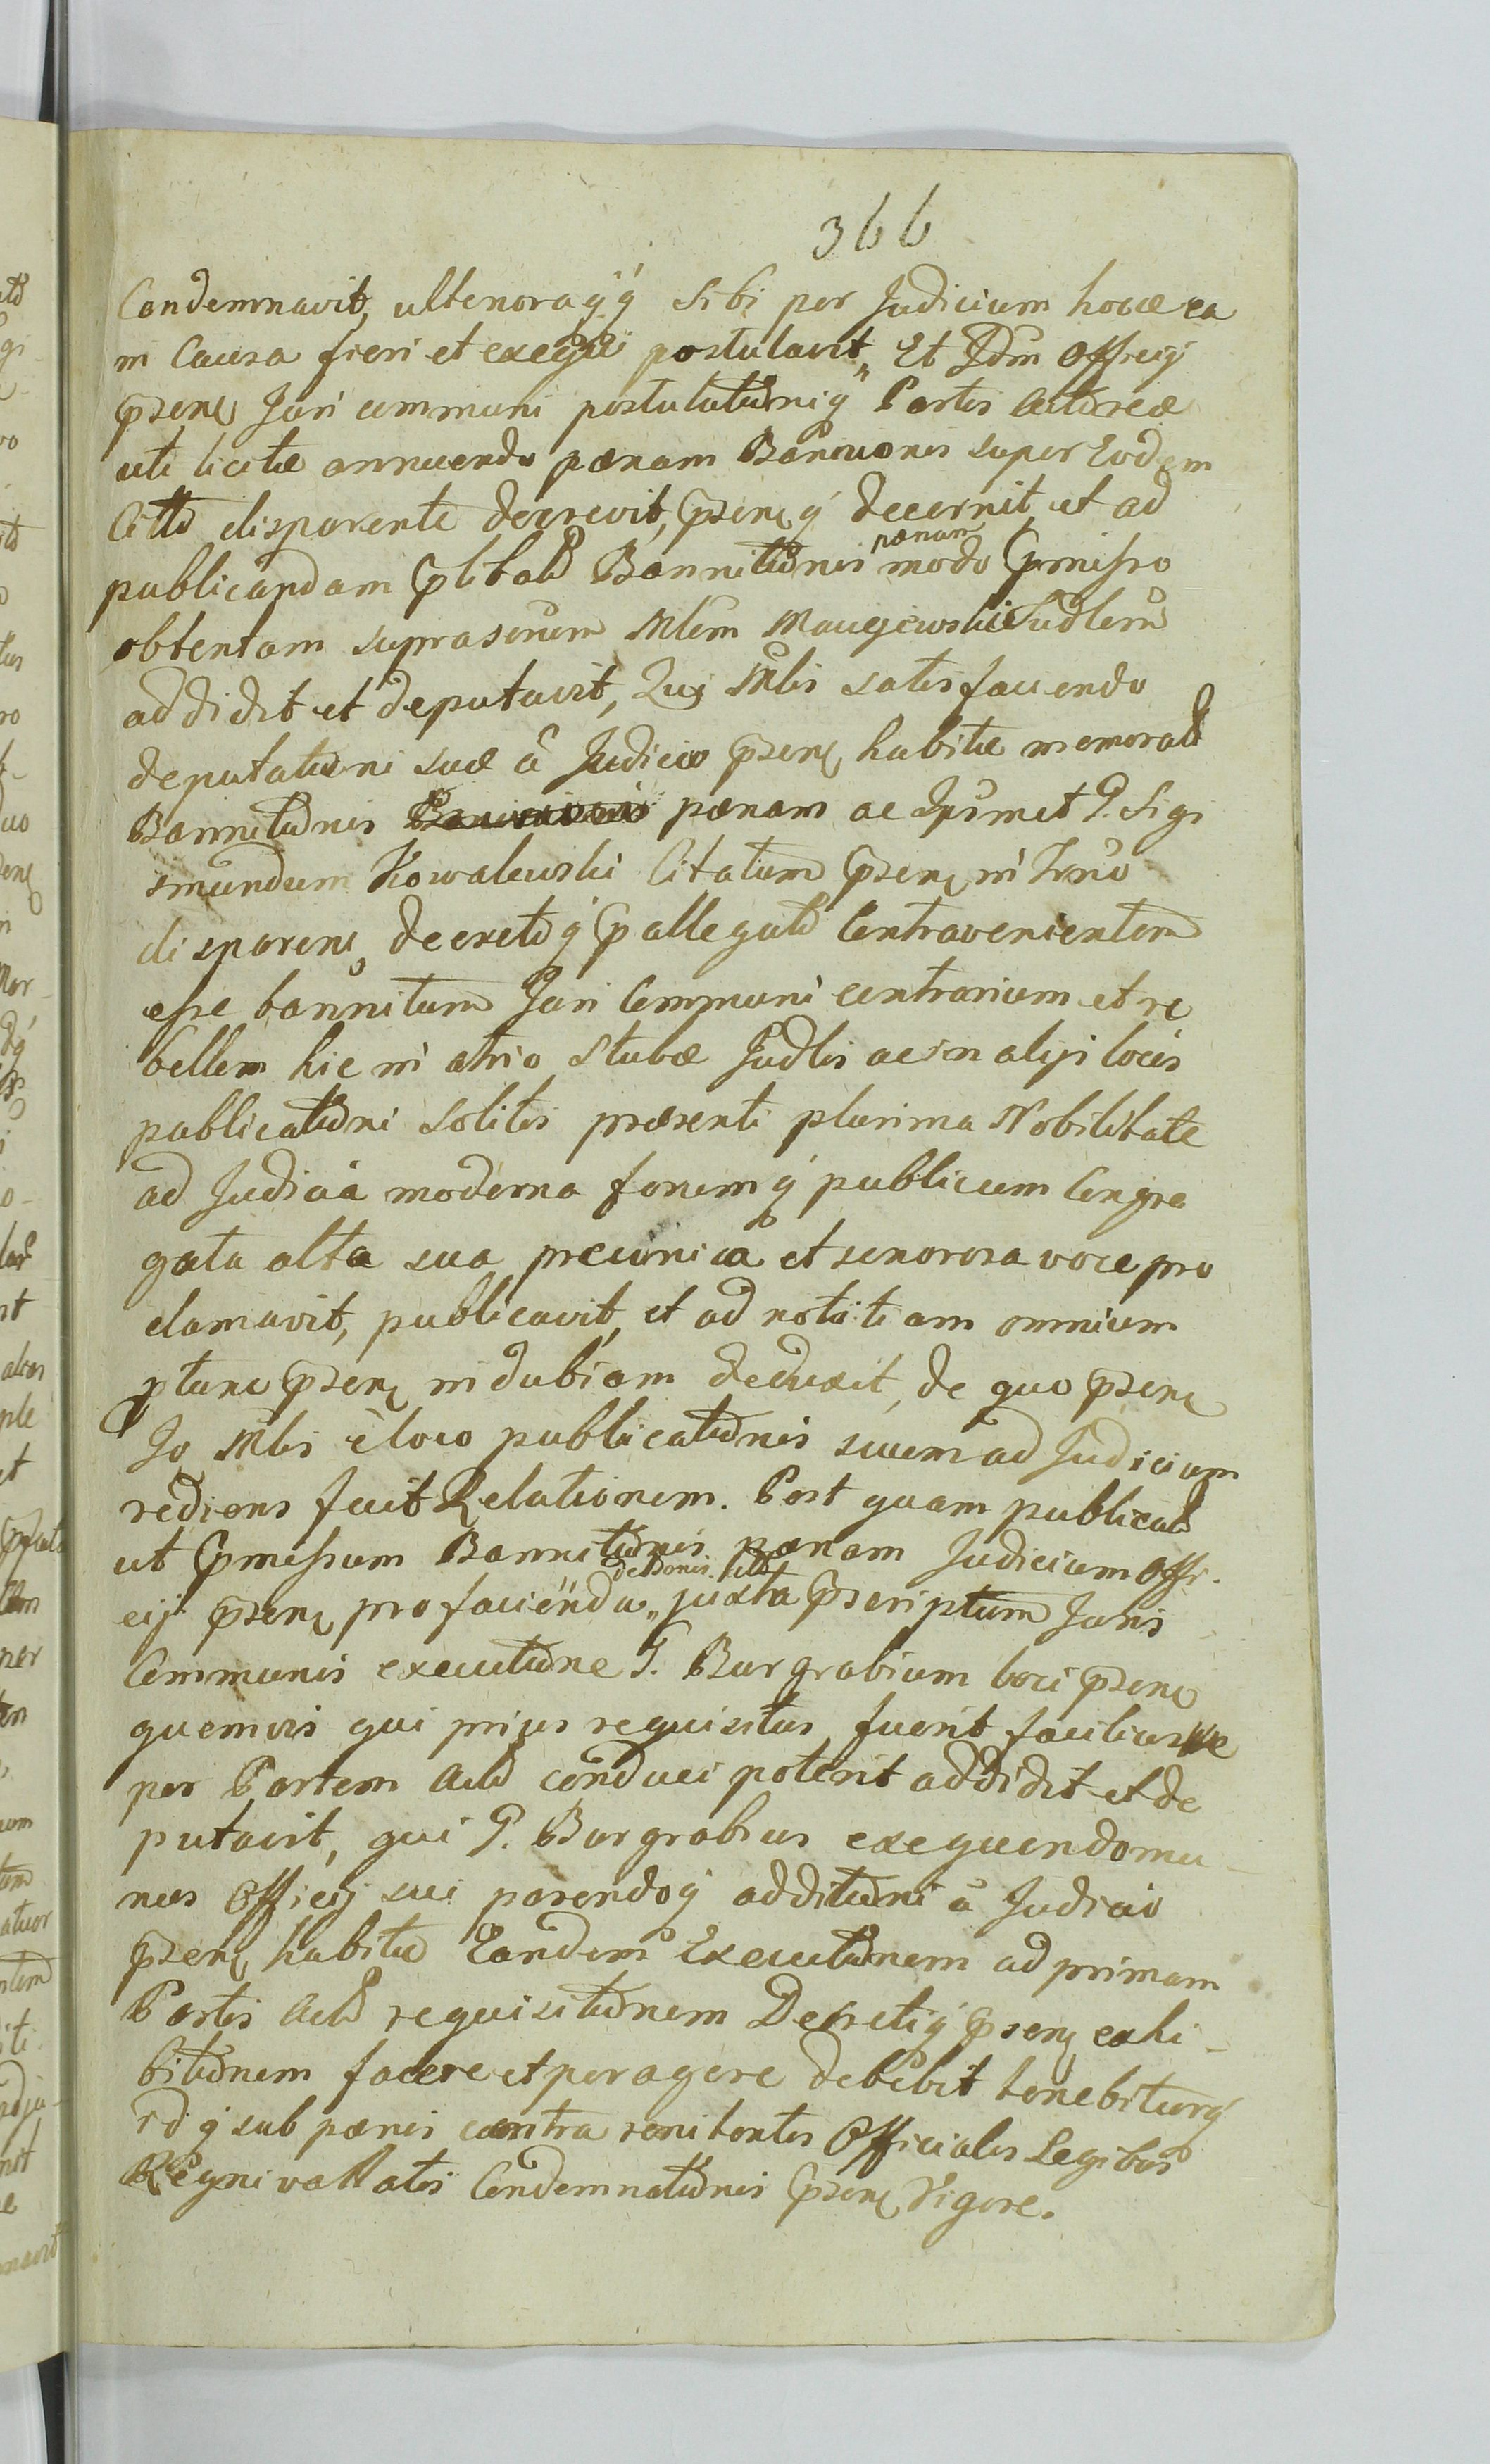 366
Condemnavit, ulterioraq̃q́ sibi per Judicium hocce ea
in Causa fieri et exequi postulavit„ Et Jdm̃ Officij
p̃sens Juri communi postulatio̅niq́ Partis actoreæ
uti licitæ annuendo pœnam Bannionis super Eodem
Citto disparente decrevit, p̃sensq́ decernit, et ad
publicandam p̃libatã Bannitio̅nis pœnam modo p̃misso
obtentam suprascrium Mlem Maujewski Judlem
addidit et deputavit, Qui Mlis satisfaciendo
deputatio̅ni suæ â Judicio p̃sens habitæ memoratã
Bannitio̅nis pœnam ac Ipsũmet G. Sigi
smundum Kowalewski Citatum p̃sens in Trno
disparens, decretoq́ p̃allegato Contravenientem
esse bannitum Juri Communi contrarium et re
bellem hic in atrio Stubæ Judlis ac in alijs locis
publicatio̅ni solitis præsenti plurima Nobilitate
ad Judicia moderna forumq́ publicum Congre
gata alta sua præconica et sonorosa voce pro
clamavit, publicavit, et ad notitiam omnium
ptunc p̃sens indubiam deduxit, de quo p̃sens
Jo Mlis è loco publicatio̅nis suum ad Judicium
rediens fecit Relationem. Post quam publicatã
ut p̃missum Bannitio̅nis pœnam Judicium Offi.
cij p̃sens pro facienda„ de bonis juxta p̃scriptum Juris
Communis executio̅ne G. Burgrabium loci p̃sens
quemvis qui prius requisitus fuerit faciliusve
per Partem Actõ conduci poterit addidit et de
putavit, qui G. Burgrabius exequendo mu
nus Officij sui parendoq́ additio̅ni â Judicio
p̃sens habitæ Eandem Executio̅nem ad primam
Partis Actõ requisitio̅nem Decretiq́ p̃sens exhi
bitio̅nem facere et peragere debebit tenebiturq́
idq́ sub pœnis contra renitentes Officiales Legibus
Regni vallatis Condemnatio̅nis p̃sens Vigore.